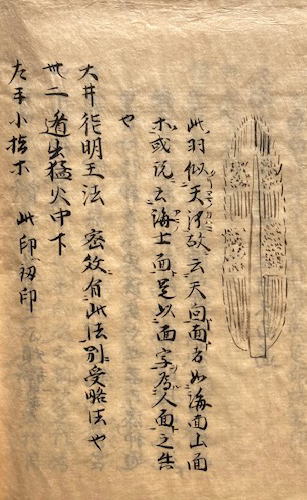 此羽似天河故云天面者如海面山面
或説云海士面是以面字為人面之
也
大井能明王法 密教有此法別受略法也
卅二 遶出猛火中下
左手小指 此印初印